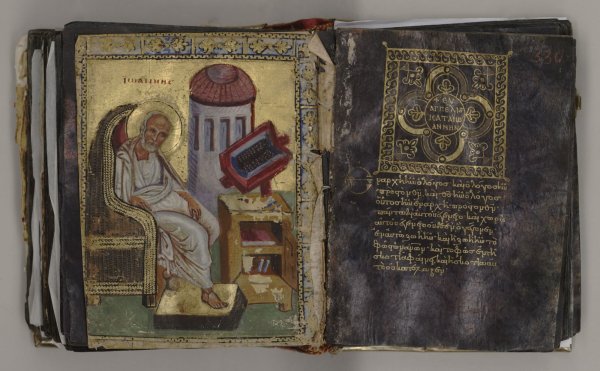 ΙΩΑΝΝΗC
+ΕΥ
ΑΓΓΕΛΙΟ
ΚΑΤΑ ΙΩ
ΑΝΝΗΝ
Ἐν ἀρχῇ ἦν ὁ λόγος καὶ ὁ λόγος ἦν
πρὸς τὸν θν καὶ θς ἦν ὁ λόγος
οὗτος ἦν ἐν ἀρχῇ πρὸς τὸν θν
πάντα δι' αὐτοῦ ἐγένετο καὶ χωρὶς
αὐτοῦ ἐγένετο οὐδὲ ἓν ὃ γέγονεν
ἐν αὐτῷ ζωὴ ἦν καὶ ἡ ζωὴ ἦν τὸ
φῶς τῶν ἀνων καὶ τὸ φῶς ἐν τῇ
σκοτίᾳ φαίνει καὶ ἡ σκοτία αὐ
τὸ οὐ κατέλαβεν